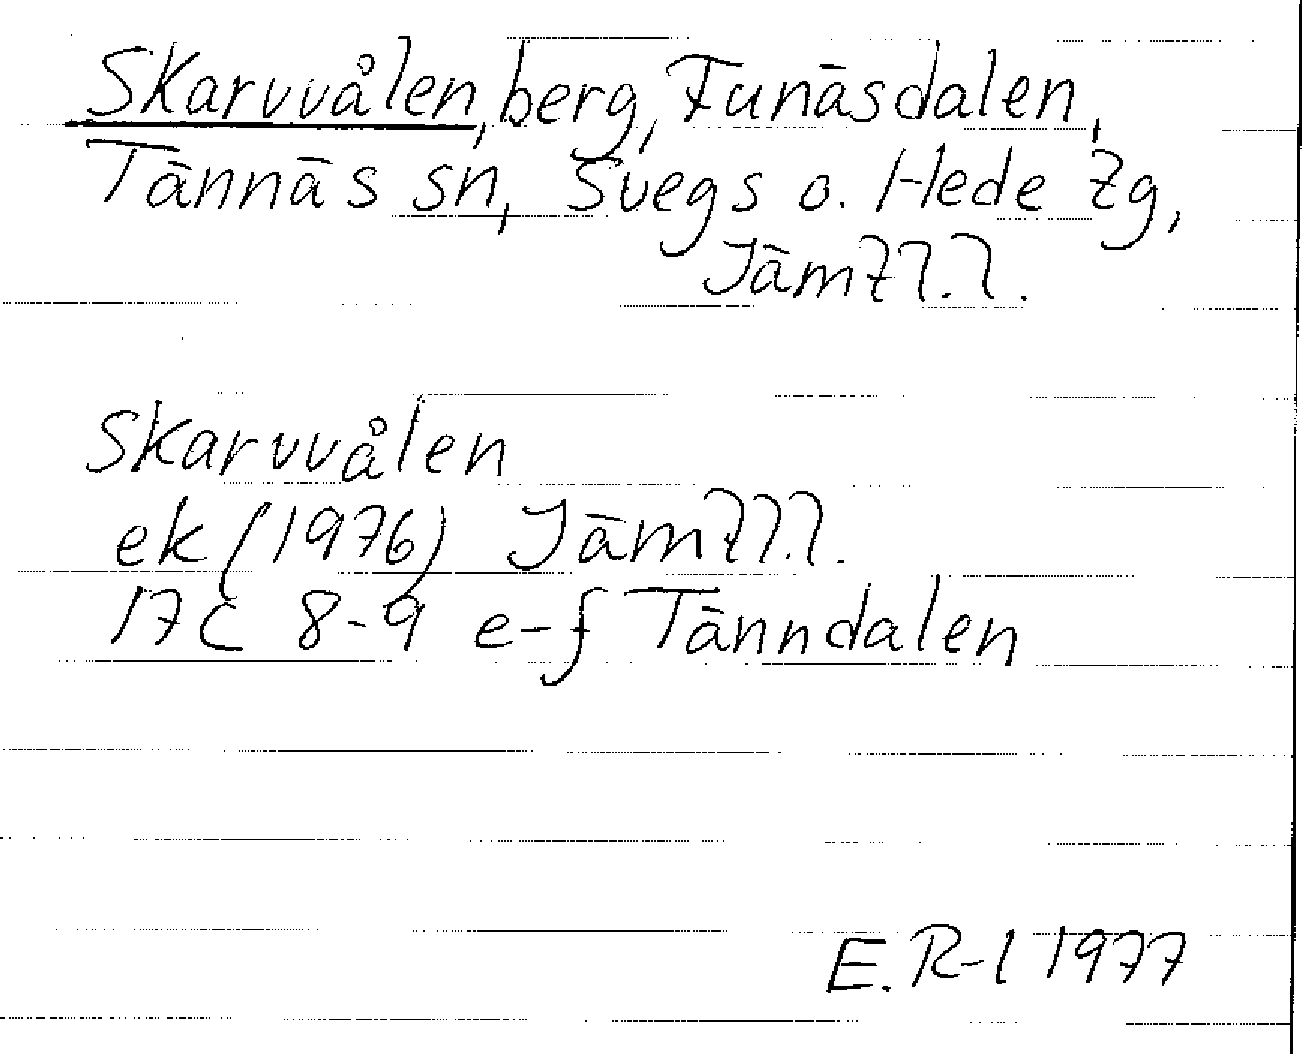 Skarvvålen, berg, Funäsdalen,
Tännäs sn, Svegs o. Hede tg,
Jämtl. l.
Skarvvålen
ek (1976) Jämtl. l.
17C 8-9 e-f Tänndalen
E. R-l 1977